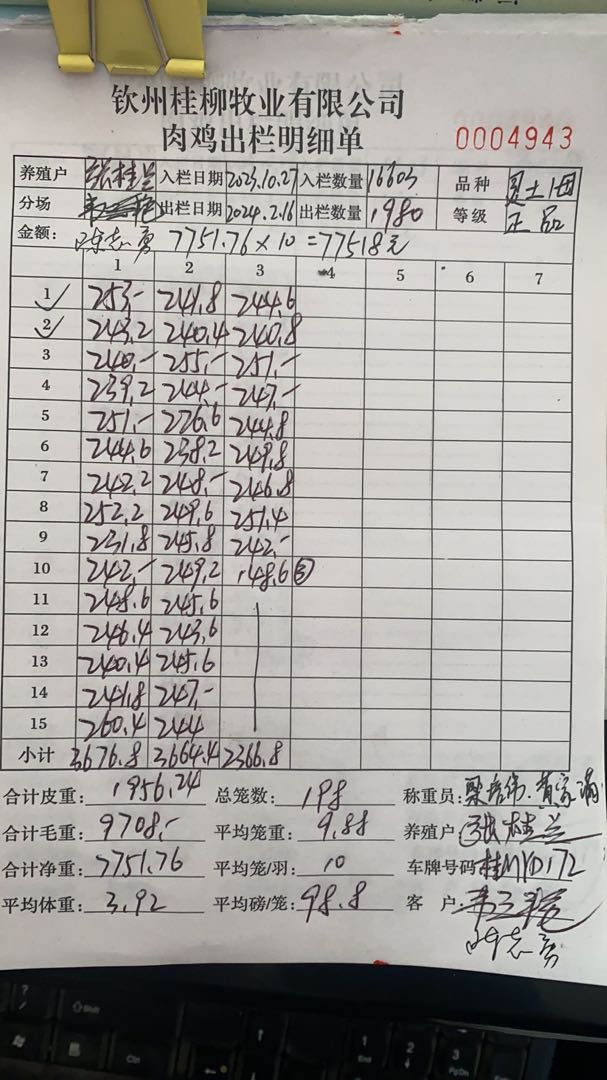 钦州桂柳牧业有限公司
肉鸡出栏明细单 0004943
养殖户 张桂兰 入栏日期 2023.10.27 入栏数量 16603 品种
分场 出栏日期 2024.2.16 出栏数量 1980 等级 正品
金额: 陈志勇 7751.76×10=77518元
1 2 3 4 5 6 7
1 253,- 241.8 244.6
2 243.2 240.4 240.8
3 240,- 255,- 251,-
4 239.2 244,- 247,-
5 251,- 226.6 244.8
6 244.6 238.2 249.8
7 242.2 248,- 246.8
8 252.2 249.6 251.4
9 231.8 245.8 242,-
10 242,- 249.2 148.6 ③
11 248.6 245.6
12 246.4 243.6
13 240.4 245.6
14 241.8 247,-
15 260.4 244
小计 3676.8 3664.4 2366.8
合计皮重: 1956.24 总笼数: 198 称重员:
合计毛重: 9708,- 平均笼重: 9.88 养殖户 张桂兰
合计净重: 7751.76 平均笼/羽: 10 车牌号码 桂MYD172
平均体重: 3.92 平均磅/笼: 98.8 客 户:
陈志勇